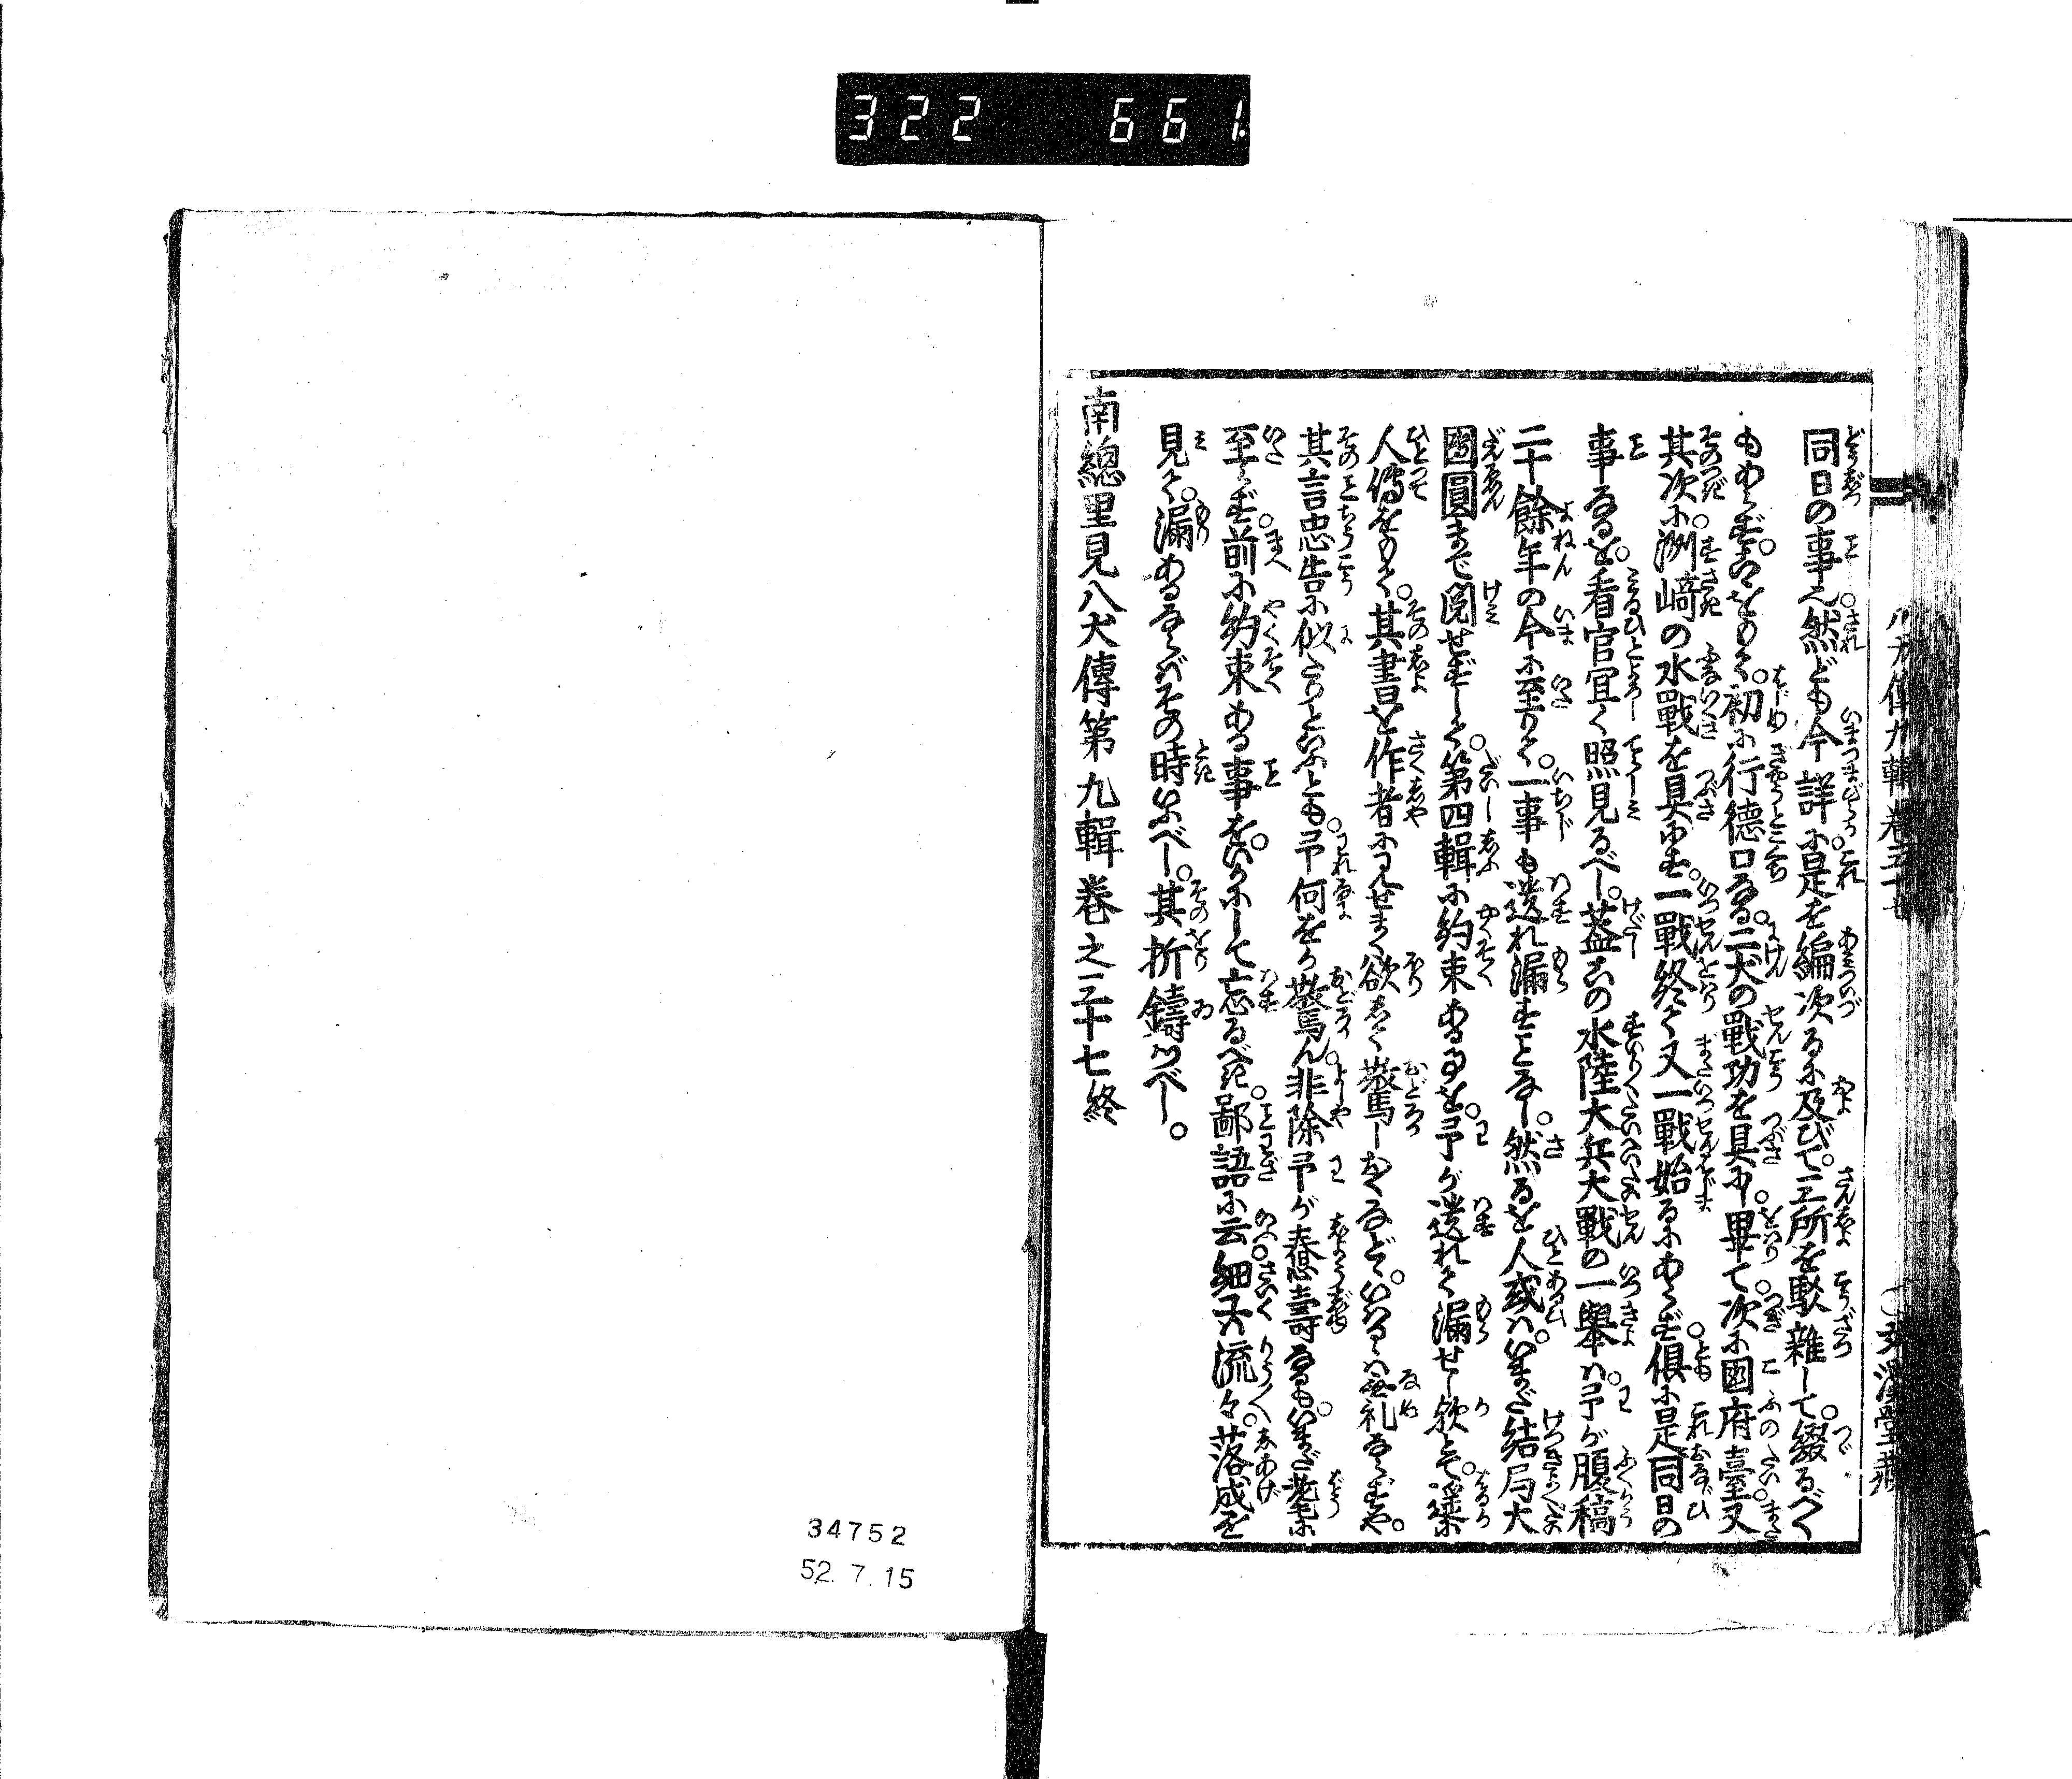 322 661.
同日の事也。然ども今詳に是を編次るに及びて。三所を駁雑して。綴るべく
もあらず。こゝをもて。初に行徳口なる。二犬の戰功を具に畢て。次に國府臺。又
其次に。洲﨑の水戰を具にす。一戰終て又一戰始るにあらず。俱に是同日の
事なるを。看官宜く照見るべし。蓋この水陸大兵大戰の一舉は。予が腹稿
二十餘年の今に至りて。一事も遺れ漏すことなし。然るを人或は。いまだ結局大
團圓まで閲せずして。第四輯に約束ある事を。予が遺れて漏せし歟とて。遙に
人傳をもて。其書を作者に見せまく欲して。驚しおくなどゝ。いはるゝは無礼ならずや。
其言忠告に似たりといふとも。予何をか驚ん。非除予が惷壽なるも。いまだ耄に
至らず。前に約束ある事を。いかにして忘るべき。鄙語に云。細工は流々。落成を
見て。漏あるならばその時いふべし。其折鑄つべし。
南總里見八犬傳第九輯卷之三十七終
34752
52.7.15